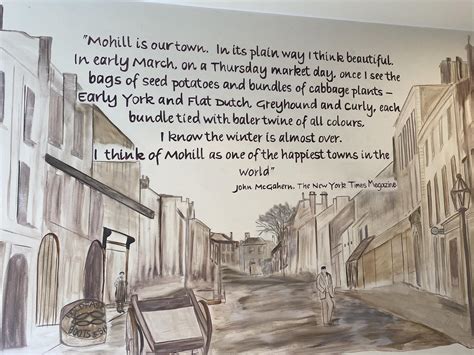 "Mohill is our town. In its plain way I think beautiful.
In early March, on a Thursday market day, once I see the
bags of seed potatoes and bundles of cabbage plants –
Early York and Flat Dutch, Greyhound and Curly, each
bundle tied with baler twine of all colours.
I know the winter is almost over.
I think of Mohill as one of the happiest towns in the
world"
John McGahern. The New York Times Magazine